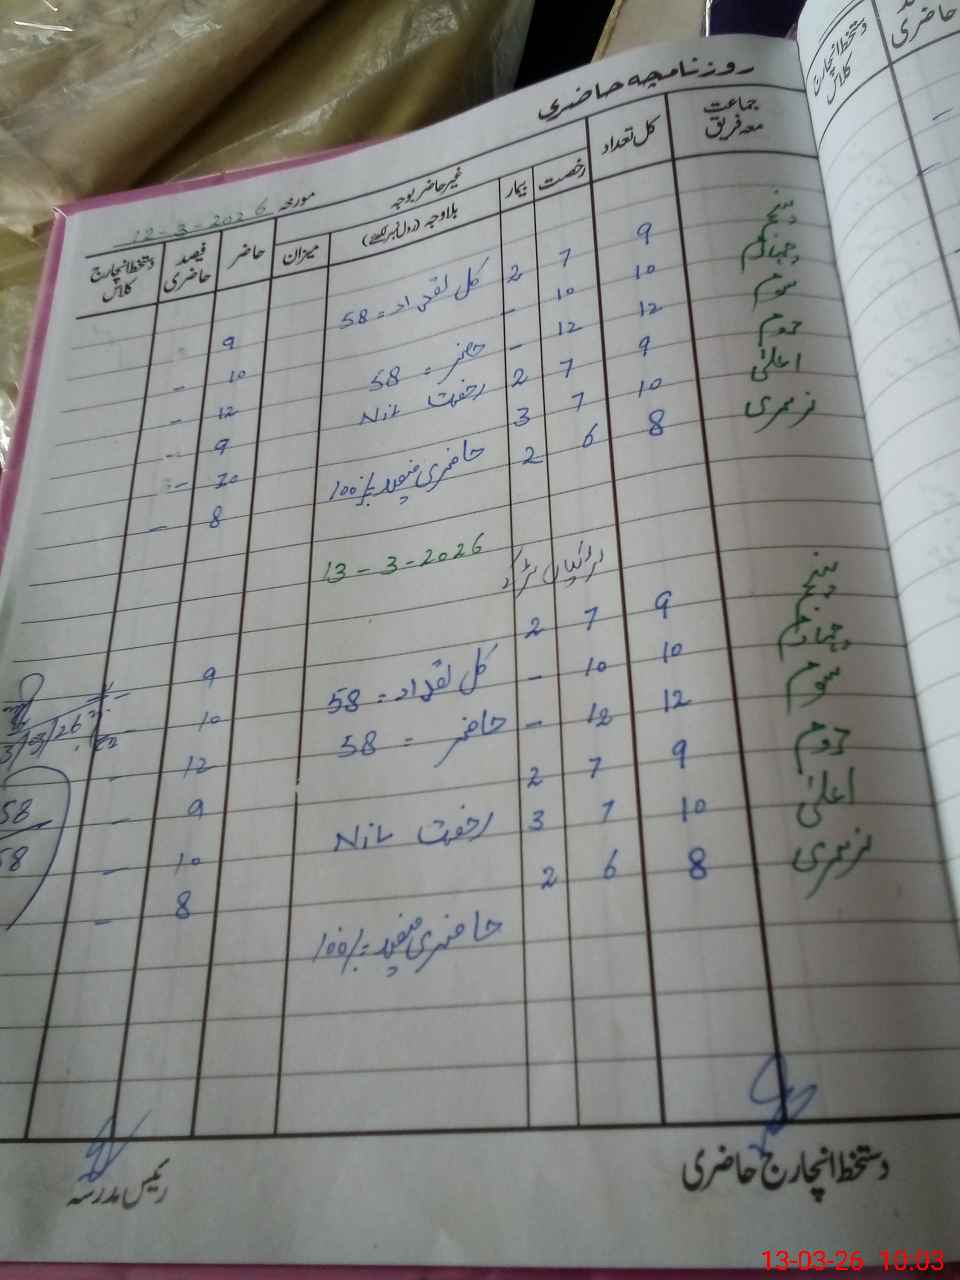 روزنامچہ حاضری
مورخہ 12-3-2026
جماعت معہ فریق کل تعداد غیر حاضر بوجہ حاضر فیصد حاضری دستخط انچارج کلاس
رخصت بیمار بلاوجہ (رول نمبر لکھئے) میزان
پنجم 9 7 2 کل تعداد = 58 9
چہارم 10 10 - 10 -
سوم 12 12 - حاضر = 58 12 -
دوم 9 7 2 رخصت Nil 9 -
اعلیٰ 10 7 3 10 -
نرسری 8 6 2 حاضری فیصد = 100% 8 -
13-3-2026
پنجم 9 7 2 9 -
چہارم 10 10 - کل تعداد = 58 10 -
سوم 12 12 - حاضر = 58 12 -
دوم 9 7 2 9 -
اعلیٰ 10 7 3 رخصت Nil 10 -
نرسری 8 6 2 8 -
حاضری فیصد = 100%
58
58
دستخط انچارج حاضری
رئیس مدرسہ
دستخط انچارج کلاس
حاضری
13-03-26 10:03